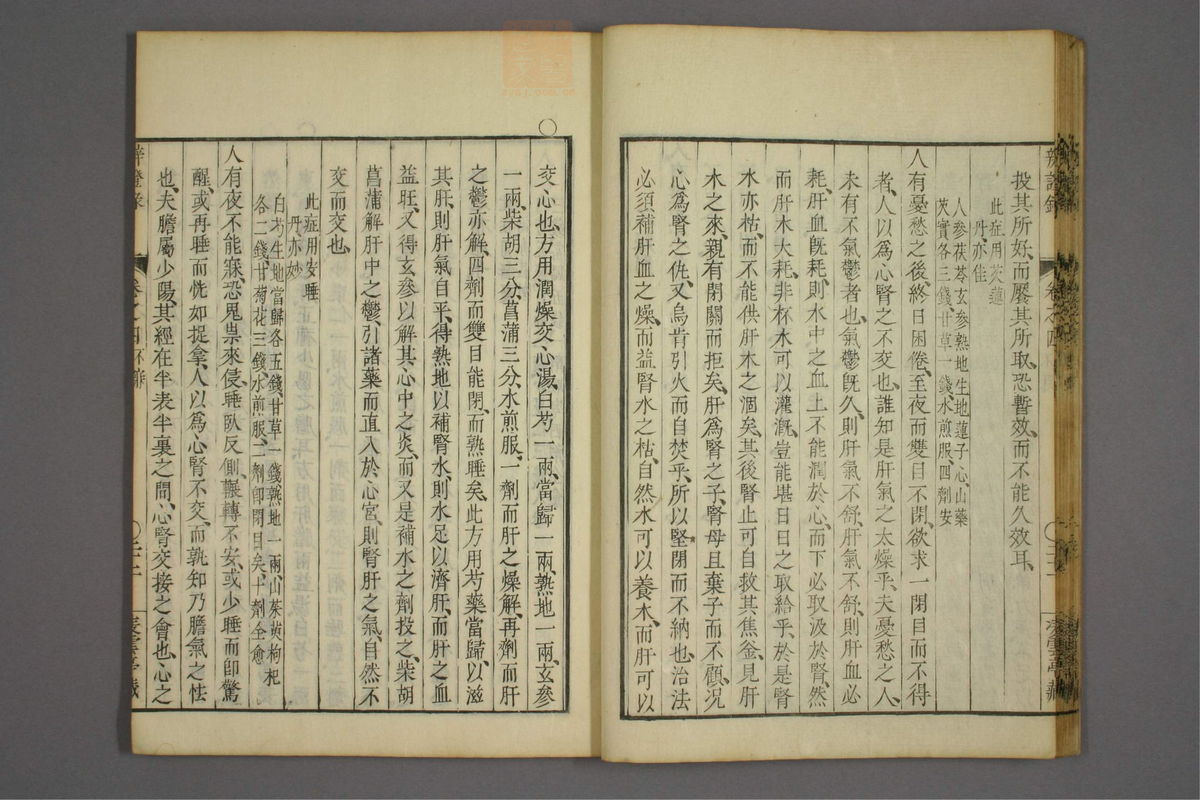 投其所好、而饜其所取、恐暫效、而不能久效耳、
此症用交蓮
丹、亦佳
人參茯苓玄參熟地生地蓮子心、山藥
芡實各三錢甘草一錢、水煎服、四劑安
人有憂愁之後、終日困倦、至夜而雙目不閉、欲求一閉目而不得
者、人以爲心腎之不交也、誰知是肝氣之太燥乎、夫憂愁之人、
未有不氣鬱者也、氣鬱既久、則肝氣不舒、肝氣不舒、則肝血必
耗、肝血既耗、則木中之血上不能潤於心、而下必取汲於腎、然
而肝木大耗、非杯水可以灌漑、豈能堪日日之取給乎、於是腎
水亦枯、而不能供肝木之涸矣、其後腎止可自救其焦釜、見肝
木之來、親有閉關而拒矣、肝爲腎之子、腎母且棄子而不顧、況
心爲腎之仇、又烏肯引火而自焚乎、所以堅閉而不納也、治法
必須補肝血之燥、而益腎水之枯、自然水可以養木、而肝可以
交心也、方用潤燥交心湯、白芍一兩、當歸一兩、熟地一兩、玄參
一兩、柴胡三分、菖蒲三分、水煎服、一劑而肝之燥解、再劑而肝
之鬱亦解、四劑而雙目能閉、而熟睡矣、此方用芍藥當歸、以滋
其肝、則肝氣自平、得熟地以補腎水、則水足以濟肝、而肝之血
益旺、又得玄參以解其心中之炎、而又是補水之劑、投之柴胡
菖蒲解肝中之鬱、引諸藥而直入於心宮、則腎肝之氣、自然不
交而交也、
此症用安睡
丹、亦妙
白芍生地當歸各五錢、甘草一錢熟地一兩、山茱萸枸杞
各二錢、甘菊花三錢、水煎服、二劑卽閉目矣、十劑全愈
人有夜不能寐、恐鬼祟來侵、睡臥反側、輾轉不安、或少睡而卽驚
醒、或再睡而恍如捉拿、人以爲心腎不交、而孰知乃膽氣之怯
也、夫膽屬少陽、其經在半表半裏之間、心腎交接之會也、心之